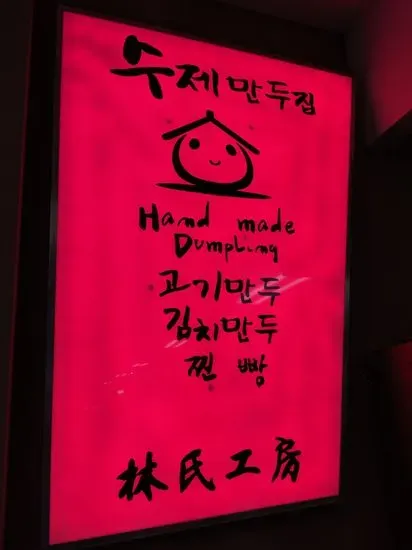 수제만두집
Hand made
Dumpling
고기만두
김치만두
찐빵
林氏工房